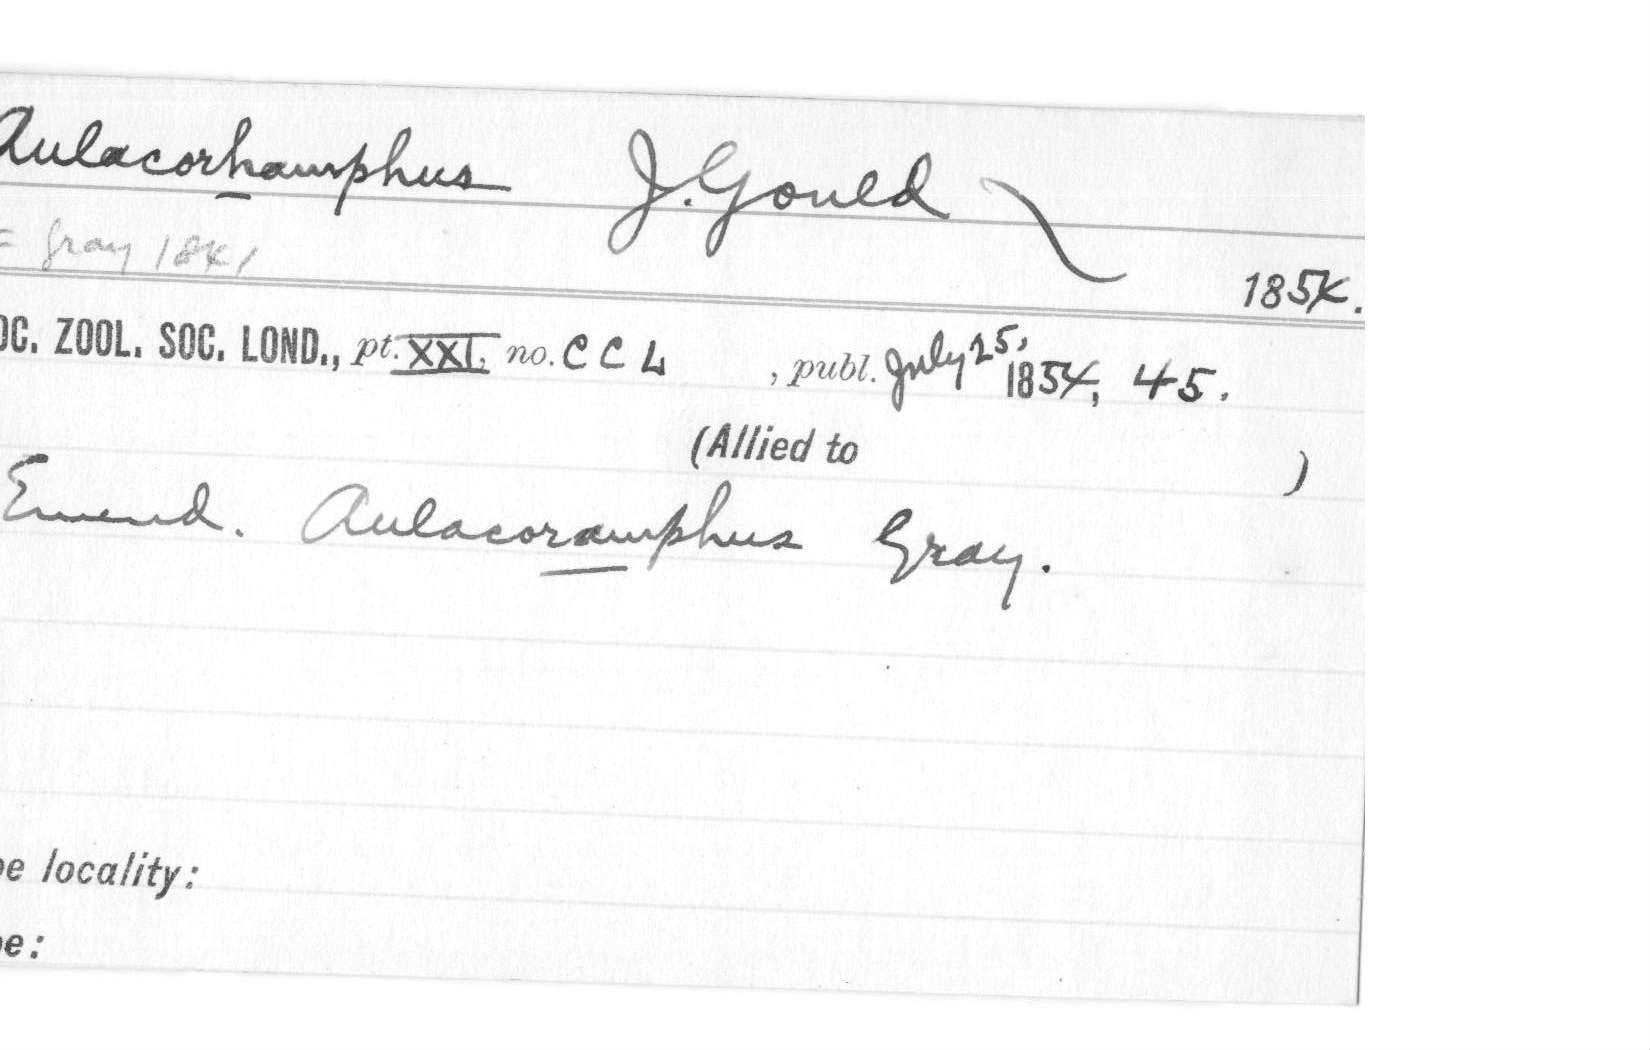 Aulacorhamphus J. Gould
= Gray 1841
1854.
OC. ZOOL. SOC. LOND., pt. XXI, no. CCL , publ. July 25, 1854, 45.
(Allied to )
Emend. Aulacoramphus Gray.
pe locality:
pe: